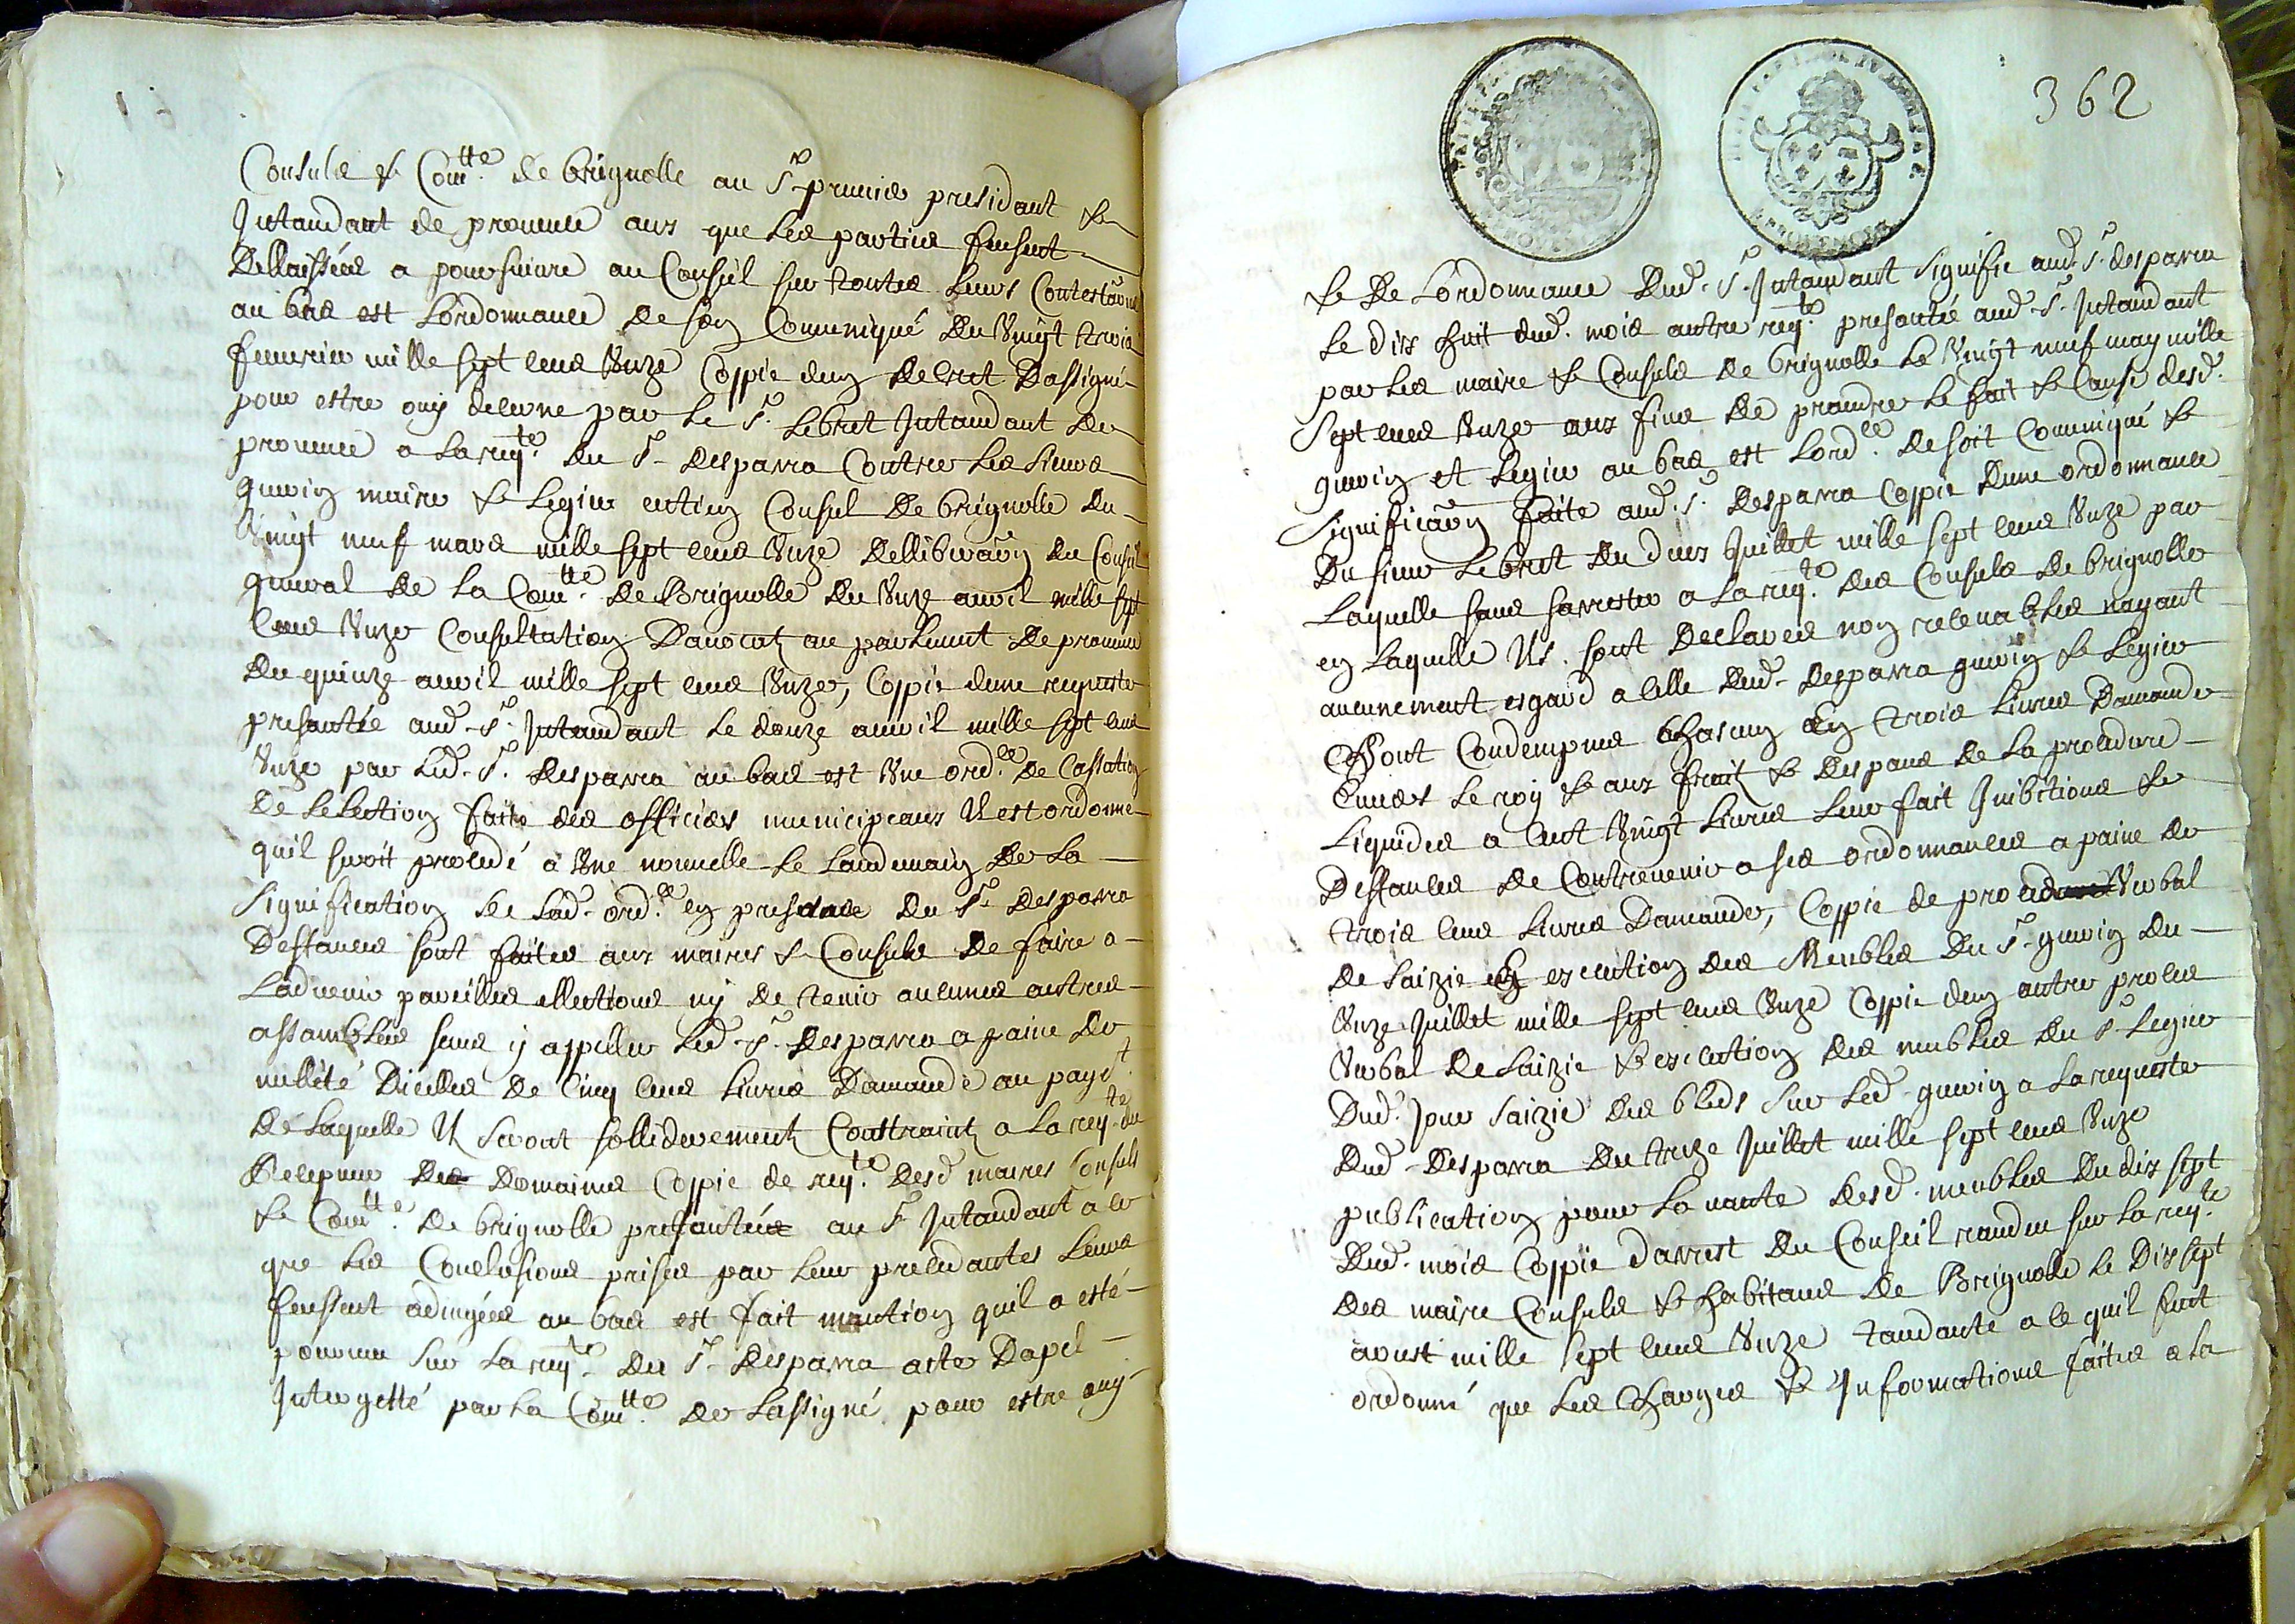 Consuls & Com.tte de brignolle au Sr premier presidant &
Jntandant de prouence aux que les parties feusent
Dellaissées a poursuiure au Conseil sur toutes leurs Contestaons
au bas est Lordonnance de soy Comuniqué du Vingt trois
feurier mille sept cens Vnze Coppie dun decret Dassigné
pour estre ouy decerne par le Sr. Lebret Jntandant de
prouence a la reqte. du Sr Desparra Contre les sieurs
guerin maire & Legier entien Consul de brignolle du
Vingt neuf mars mille sept cens Vnze Delliberaon du Conseil
general de la Com.tte de Brignolle du Vnze auril mille sept
cens Vnze Consultation Dauocatz au parlement de prouence
du quinze auril mille sept cens Vnze, Coppie dune requeste
presantée aud. Sr. Jntandant le douze auril mille sept cens
Vnze par led. Sr. Desparra au bas est Vne ordce. de Cassation
de Lelection faite des officiers municipeaux Il est ordonne
quil seroit procedé a Vne nouuelle le landemain de la
signification de lad. ordce. en presance du Sr Desparra
Deffances sont faites aux maires & Consuls de faire a
Laduenir pareilles ellections ny de tenir aucunes autres
assamblées sans y appeller led. Sr. Desparra a paine de
nullité Dicelles de Cinq cens liures Damande au payt.
de laquelle Il seront solliderement Constraintz a la reqte du
Receueur des Domaines Coppie de reqte. desd maires Consuls
& Comtte. de brignolle presantées au Sr Jntandant a ce
que les Conclusions prises par leur precedantes leurs
feussent adiugées au bas est fait mantion quil a esté
pourueu sur la reqte. du Sr Desparra acte Dapel
Jnterjetté par la Comtte. de Lassigné pour estre ouy
362
& de Lordonnance dud. Sr. Jntandant signifie aud. Sr. desparra
le dix huit dud. mois autre reqte. presantée aud. Sr. Jntandant
par les maire & Consuls de brignolle le Vingt neuf may mille
sept cens Vnze aux fins de prandre le fait & Cause desd.
guerin et Legier au bas est Lordce. de soit Comuniqué &
significaon faite aud. Sr. Desparra Coppie dune ordonnance
du sieur Lebret du dix Juillet mille sept cens Vnze par
laquelle sans sarrester a la reqte. des Consuls de brignolle
en laquelle Ils sont Declares non receuables nayant
aucunement esgard a celle dud. Desparra guerin & Legier
sont Condempnes Chascun en trois liures Damande
enuers le roy & aux fraix & Despans de la procedure
Liquides a Cent Vingt liures leur fait Jnibitions &
Deffances de Contreuenir a ses ordonnances a paine de
trois cens liures Damande, Coppie de proces Verbal
de saizie en execution des Meubles du Sr. guerin du
Vnze Juillet mille sept cens Vnze Coppie dun autre proces
Verbal de saizie & execution des meubles du Sr. Legier
dud. Jour saizie des bleds sur led. guerin a la requeste
dud. Desparra du treze Juillet mille sept cens Vnze
publication pour la vante desd. meubles du dix sept
dud. mois Coppie darrest du Conseil randeu sur la reqte
des maire Consuls & habitans de Brignolle le Dix sept
aoust mille sept cens Vnze tandante a ce quil feut
ordonné que les Charges & Jnformations faites a la